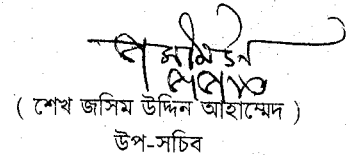 ( শেখ জসিম উদ্দিন আহাম্মেদ )
উপ-সচিব